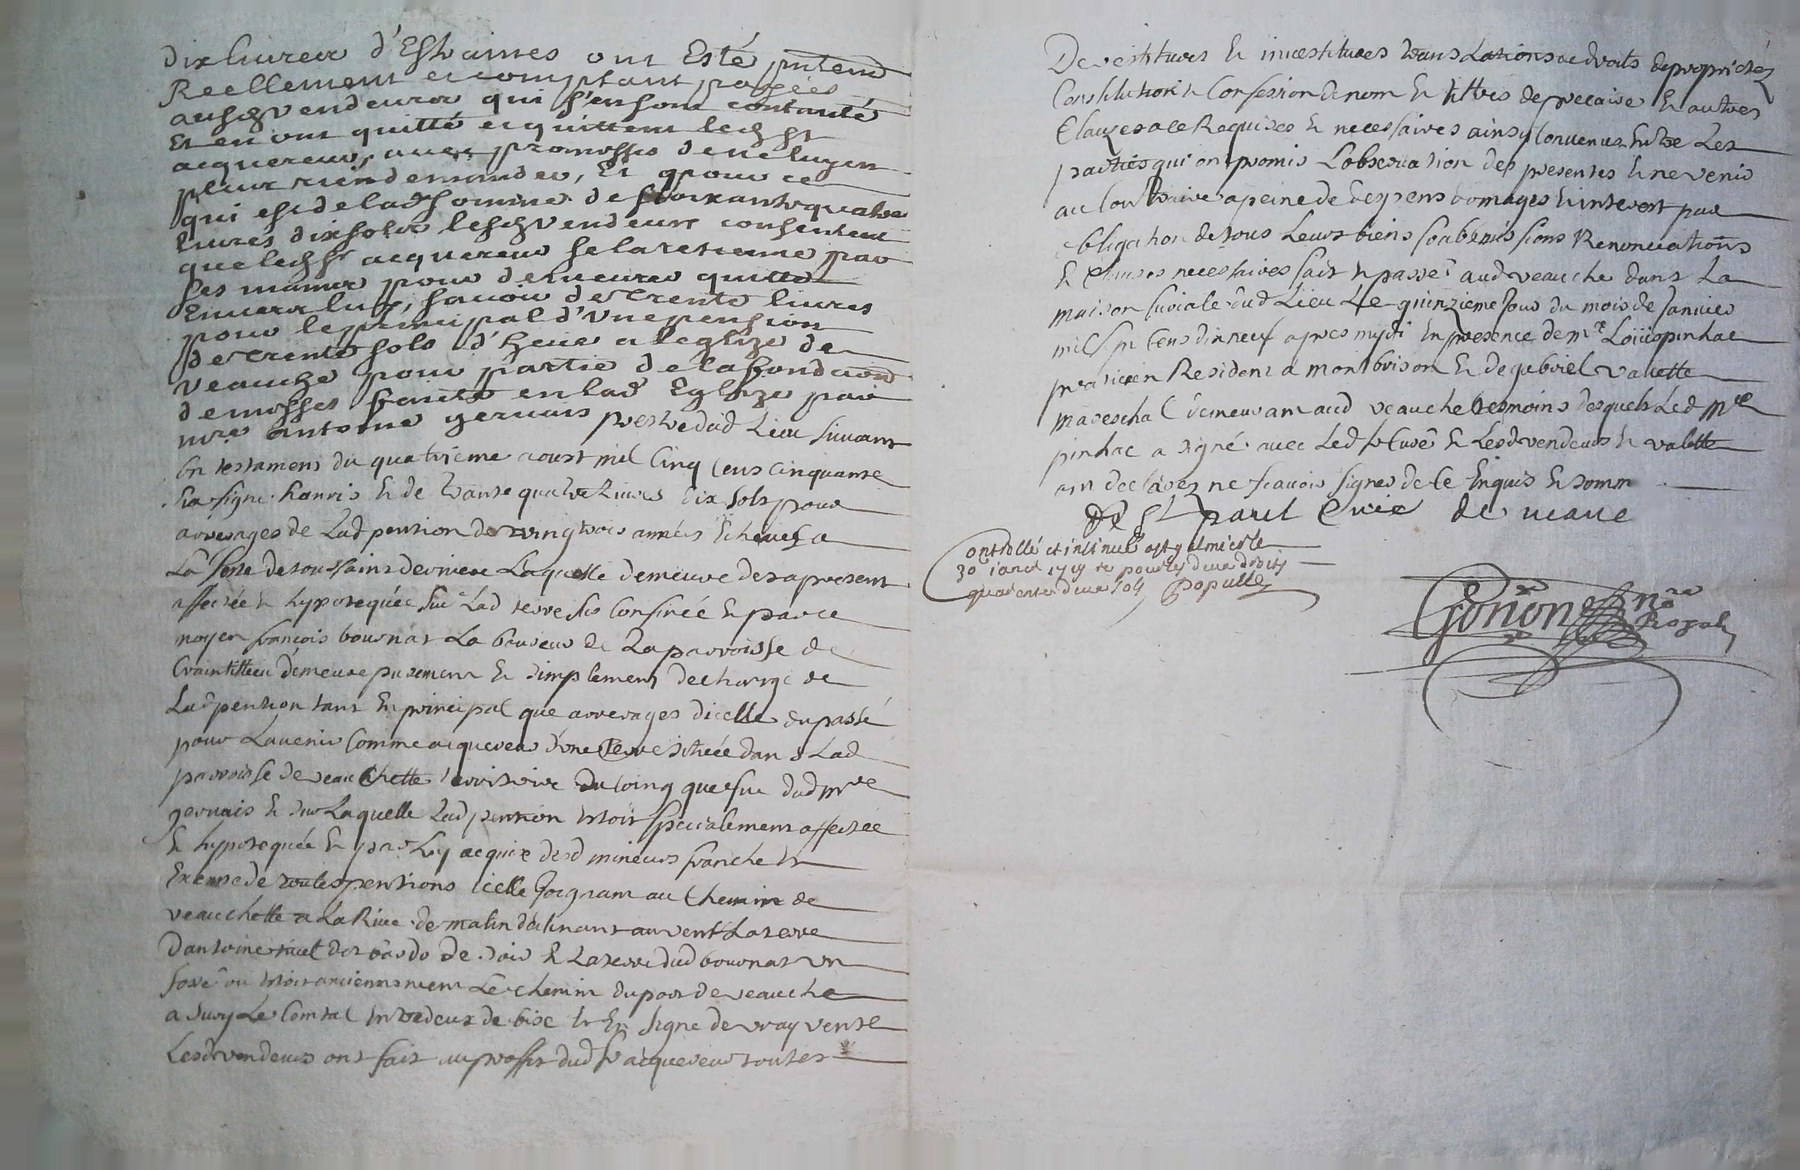 dix livres d'Estraines ont Esté pntemt
Reellement et comptant payées
ausd vendeurs qui s'en sont contanté
Et en ont quitté et quittent led sr
acquereur, avec promesses de ne luy en
plus rien demander, Et pour ce
qui est de lad somme de soixante quatre
livres dix solz lesd vendeurs consentent
que led sr acquereur se la retienne par
ses mains pour demeurer quitte
Envers luy, savoir de trente livres
pour le principal d'Une pension
de trente solz d'heue a leglize de
veauche pour partie de la fondaon
de messes faite en lad Eglize par
mre antoine gervais prestre dud Lieu suivant
son testament du quatrieme aoust mil Cinq Cens Cinquante
signe hanris Et de trante quatre Livres dix sols pour
arrerages de Lad pention de vingt trois années Echeues a
La feste de toussains derniere Laquelle demeure des apresent
affectée et hypotequée sur Lad terre sus Confinée Et par ce
moyen françois bournat La boureur de La parroisse de
Craintillieu demeure purement Et simplement decharge de
Lad pention tant En principal que arrerages dicelle du passé
pour Lavenir Comme acquereur d'une Terre scituée dans Lad
parroisse de veauchette territoire du Coing que fut dud mre
gervais Et sur Laquelle Lad pention Estoit specialement affectée
Et hypotequée Et par Luy acquise desd mineurs franche Et
Exempte de toutes pentions icelle Joignant au Chemin de
veauchette a La Rive de matin declinant au vent La terre
dantoine de soir Et La terre dud bournat un
fossé ou Estoit anciennement Le chemin du port de veauche
a sury Le Comtal Entre deux de bise Et En signe de vray vente
Lesd vendeurs ont fait au proffit dud sr acquereur toutes
Devestitures Et investitures translations de droits de proprietés
Constitution Et Confession de nom Et tittres de precaire Et autres
Clauzes a ce Requises Et necessaires ainsy Convenus Entre Les
parties qui ont promis Lobservation des presentes Et ne venir
au Contraire a peine de despens domages Et interest par
obligation de tous Leurs biens soubmissions Renonciations
Et Clauses necessaires fait Et passé aud veauche dans La
maison curiale dud Lieu Le quinzieme Jour du mois de Janvier
mil sept Cens dix neuf apres mydi En presence de mre Loüis pinhac
praticien Resident a montbrison Et de gabriel valette
mareschal demeurant aud veauche tesmoins desquels Led mre
pinhac a signé avec Led sr Curé Et Lesd vendeurs Et valette
ont declarez ne sçavoir signer de ce Enquis Et somm
De St paul Curé de veauche
Controllé et insinué a st galmier le
30e janvr 1719 re pour les deux droits
quarente deux sols Populle
Gonon nore
Royal